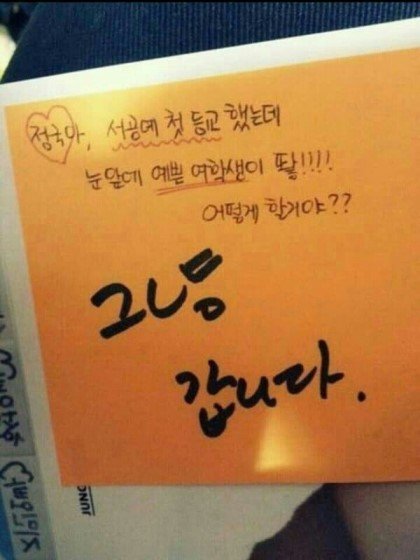 정국아, 서공예 첫 등교 했는데
눈앞에 예쁜 여학생이 딸!!!!
어떻게 할거야??
그냥
갑니다.
JUNG